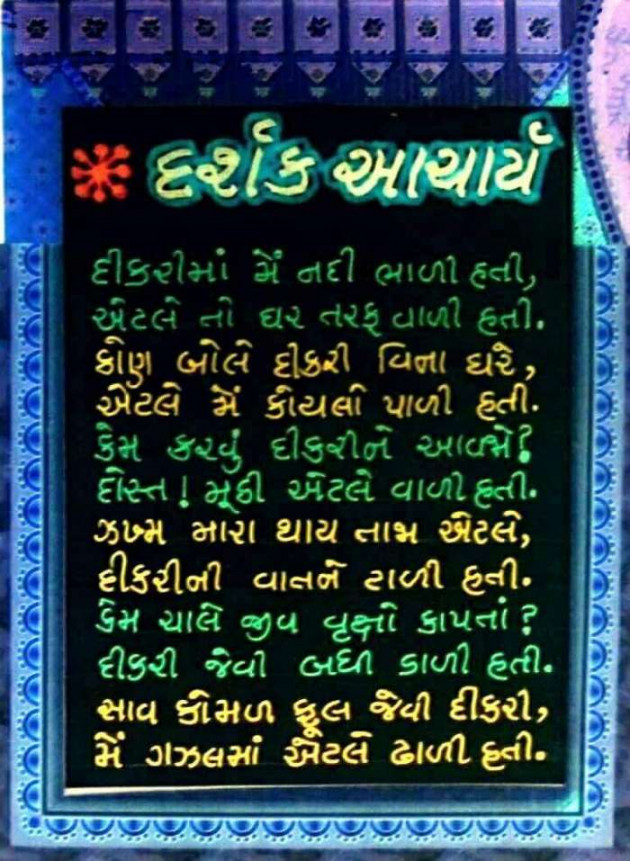 દર્શક આચાર્ય
દીકરીમાં મેં નદી ભાળી હતી,
એટલે તો ઘર તરફ વાળી હતી.
કોણ બોલે દીકરી વિના ઘરે,
એટલે મેં કોયલો પાળી હતી.
કેમ કરવું દીકરીને આવજો?
દોસ્ત! મૂઠી એટલે વાળી હતી.
ઝખ્મ મારા થાય તાજા એટલે,
દીકરીની વાતને ટાળી હતી.
કેમ ચાલે જીવ વૃક્ષો કાપતાં?
દીકરી જેવી બધી ડાળી હતી.
સાવ કોમળ ફૂલ જેવી દીકરી,
મેં ગઝલમાં એટલે ઢાળી હતી.